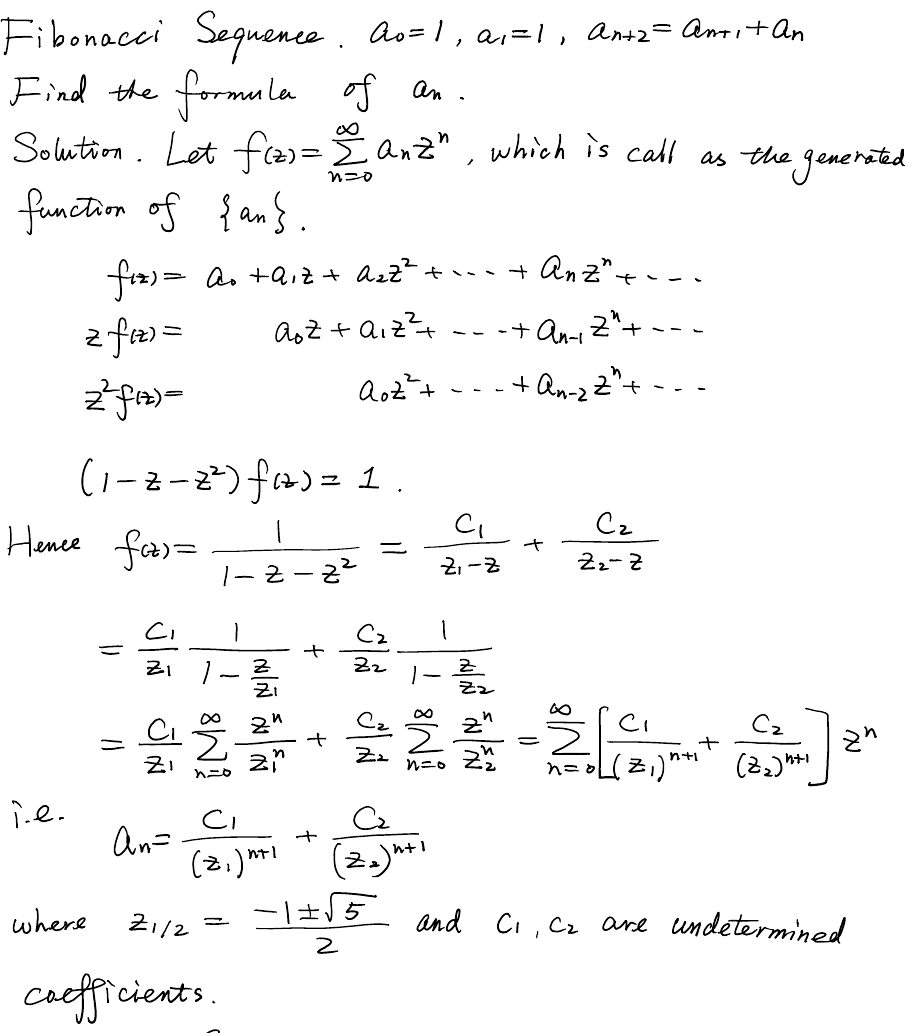 Fibonacci Sequence. a₀=1, a₁=1, aₙ₊₂=aₙ₊₁+aₙ
Find the formula of aₙ.
Solution. Let f(z)=∑_{n=0}^{∞} aₙzⁿ, which is call as the generated
function of {aₙ}.
f(z)= a₀ +a₁z + a₂z² + --- + aₙzⁿ + ---
z f(z)= a₀z + a₁z² + --- + aₙ₋₁zⁿ + ---
z² f(z)= a₀z² + --- + aₙ₋₂zⁿ + ---
(1-z-z²) f(z) = 1.
Hence f(z)= 1/(1-z-z²) = C₁/(z₁-z) + C₂/(z₂-z)
= C₁/z₁ 1/(1-z/z₁) + C₂/z₂ 1/(1-z/z₂)
= C₁/z₁ ∑_{n=0}^{∞} zⁿ/z₁ⁿ + C₂/z₂ ∑_{n=0}^{∞} zⁿ/z₂ⁿ = ∑_{n=0}^{∞} [C₁/(z₁)ⁿ⁺¹ + C₂/(z₂)ⁿ⁺¹] zⁿ
i.e.
aₙ= C₁/(z₁)ⁿ⁺¹ + C₂/(z₂)ⁿ⁺¹
where z_{1/2} = (-1±√5)/2 and C₁, C₂ are undetermined
coefficients.